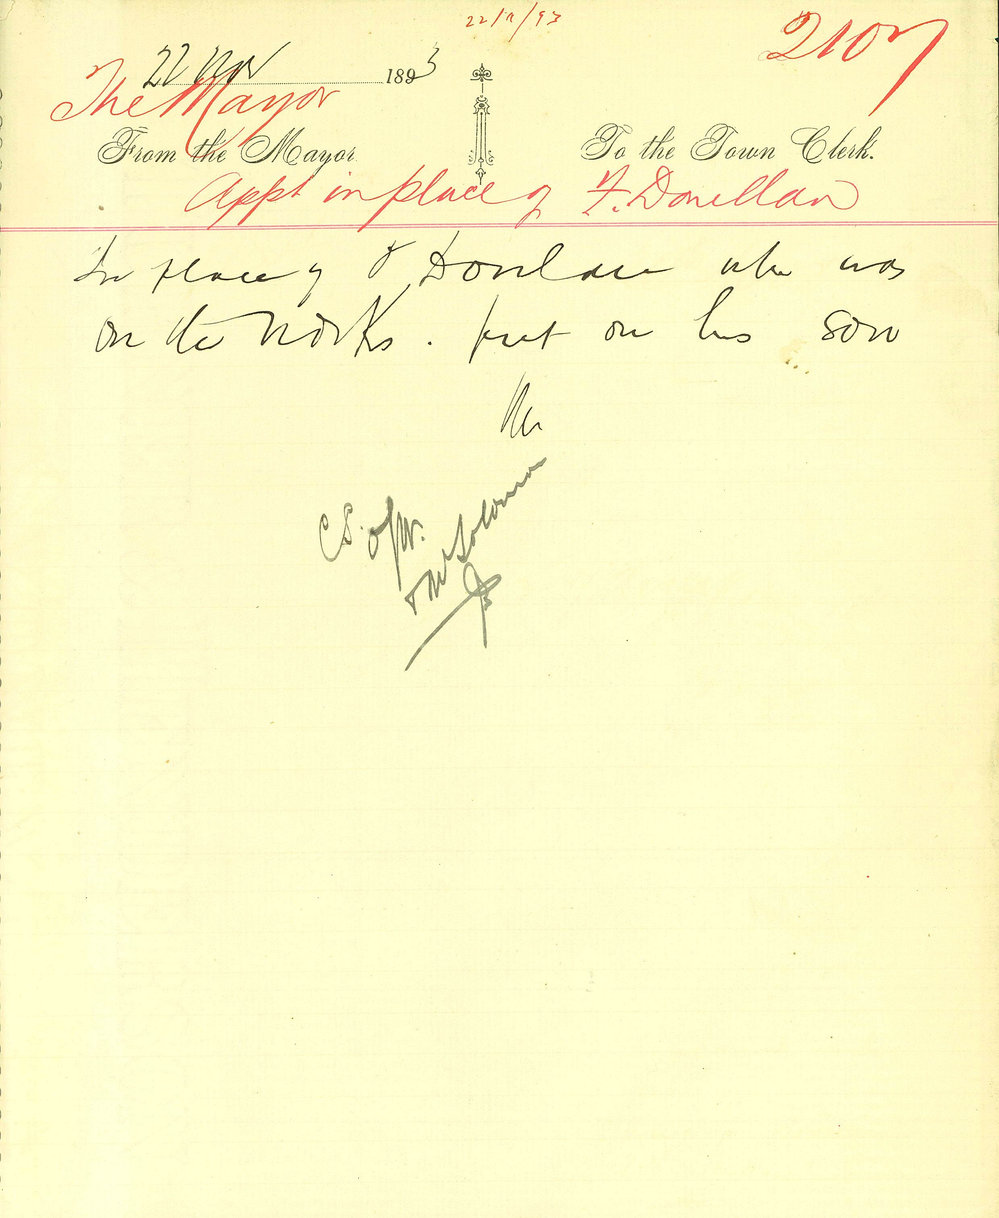 22/11/93
2107
22 Nov 1893
The Mayor
From the Mayor. To the Town Clerk.
Appt in place of F. Donellan
In place of F Donellan who was
on the Works. put on his son